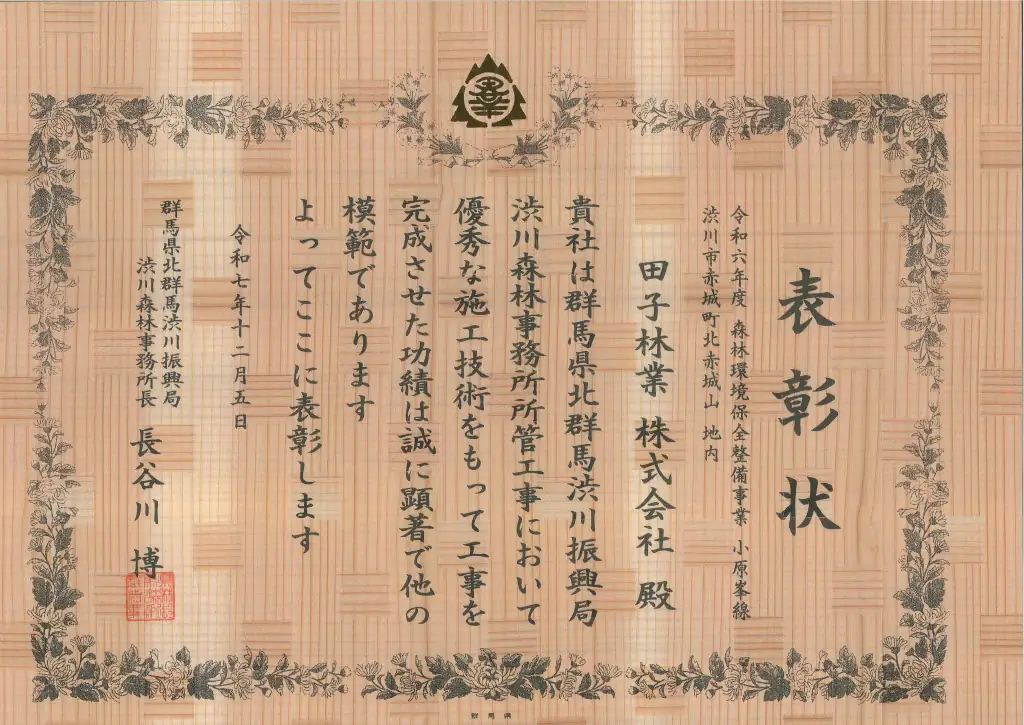 表彰状
令和六年度 森林環境保全整備事業 小原峯線
渋川市赤城町北赤城山 地内
田子林業 株式会社 殿
貴社は群馬県北群馬渋川振興局
渋川森林事務所所管工事において
優秀な施工技術をもって工事を
完成させた功績は誠に顕著で他の
模範であります
よってここに表彰します
令和七年十二月五日
群馬県北群馬渋川振興局
渋川森林事務所長
長谷川 博
群馬県